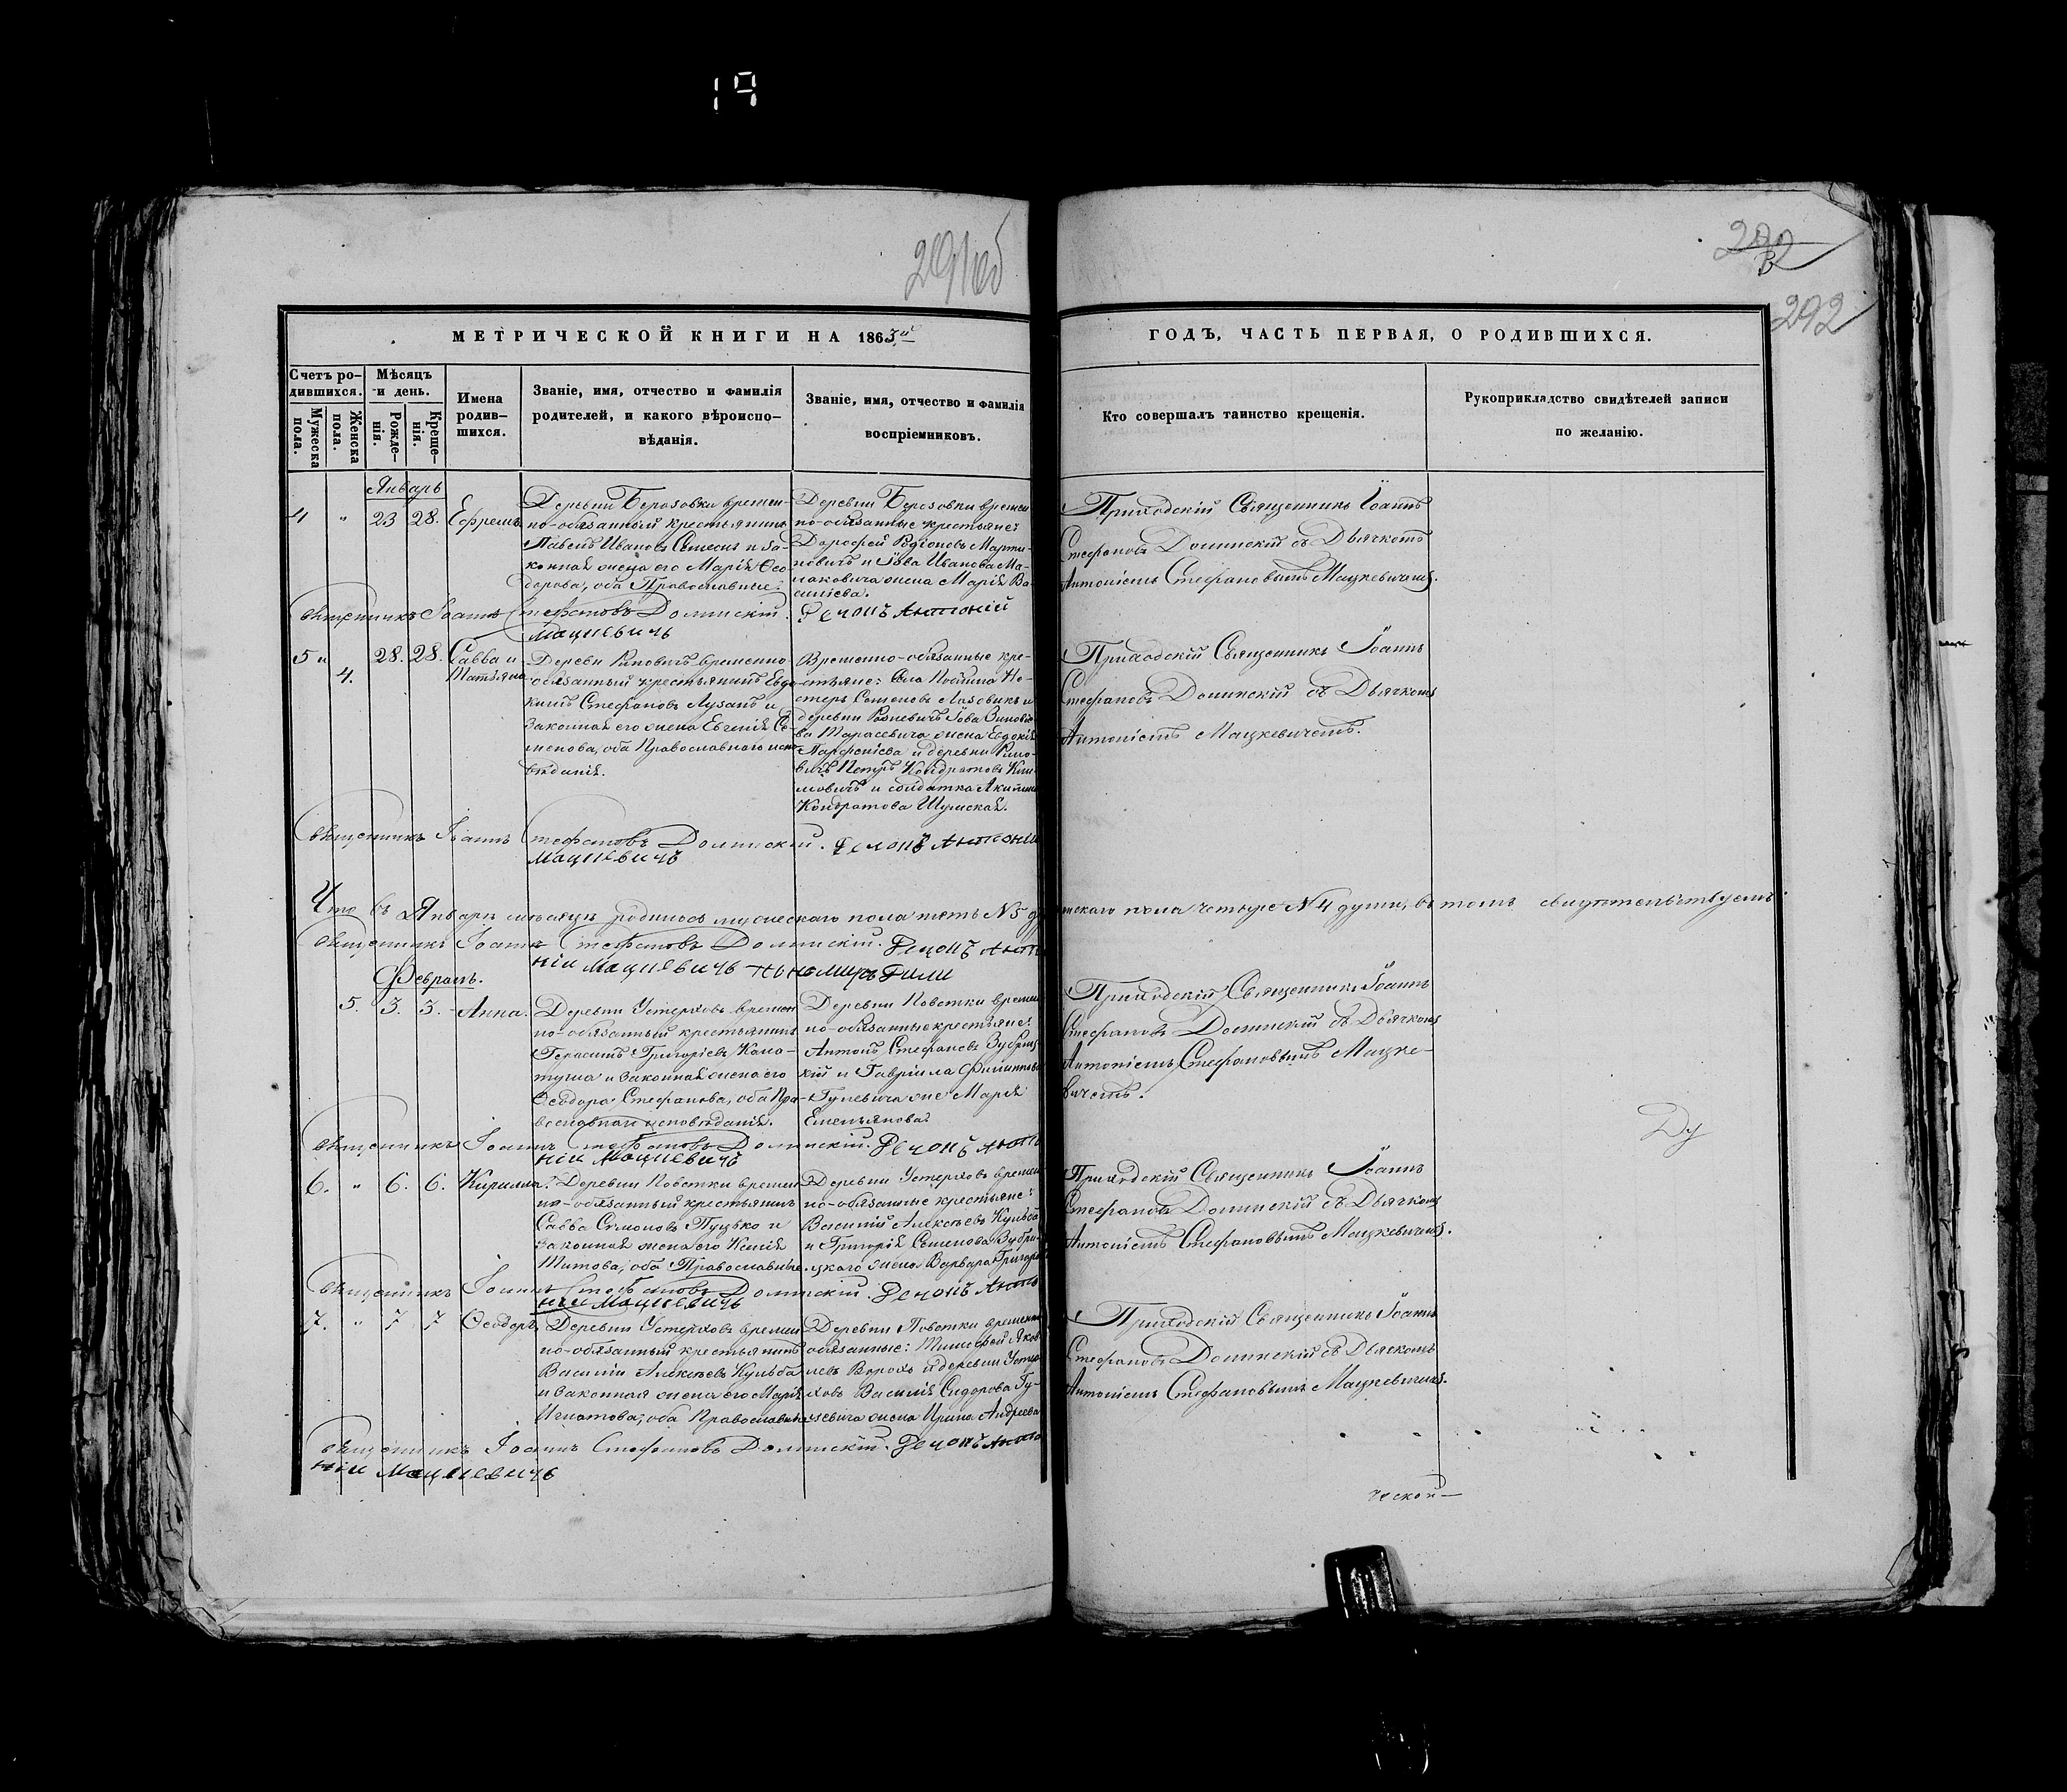 19
291 об
292
292
МЕТРИЧЕСКОЙ КНИГИ НА 1863й
ГОДЪ, ЧАСТЬ ПЕРВАЯ, О РОДИВШИХСЯ.
Счетъ ро-
дившихся.
Мужеска
пола.
Женска
пола.
Мѣсяцъ
и день.
Рожде-
нія.
Креще-
нія.
Имена
родив-
шихся.
Званіе, имя, отчество и фамилія
родителей, и какого вѣроиспо-
вѣданія.
Званіе, имя, отчество и фамилія
воспріемниковъ.
Кто совершалъ таинство крещенія.
Рукоприкладство свидѣтелей записи
по желанію.
Январь
4 " 23 28. Ефремъ
Деревни Березовки времен-
но-обязанный крестьянинъ
Павелъ Ивановъ и за-
конная жена его Марія Ѳео-
дорова, оба Православные.
Деревни Березовки времен
но-обязанные крестьяне:
Дорофей Родіоновъ Марти-
новичъ и Іова Иванова Ма-
лаховича жена Марія Ва-
силіева.
Приходскій Священникъ Іоаннъ
Стефановъ Долинскій съ Дьячкомъ
Антоніемъ Стефановымъ Мацкевичемъ.
Священникъ Іоаннъ Стефановъ Долинскій. Дечокъ Антоній
Мацкевичъ
5 и 4. 28. 28. Савва и
Татьяна
Деревни Риловичъ временно
обязанный крестьянинъ Евдо-
кимъ Стефановъ Лузанъ и
законная его жена Евгенія Се-
менова, оба Православнаго испо-
вѣданія.
Временно-обязанные кре-
стьяне: Села
Семеновъ Лазовикъ и
деревни Іова Зиновіе-
ва Тарасевича жена Евдокія
Парфеніева и деревни Рило-
вичъ Петръ Кондратовъ Кли-
мовичъ и солдатка Акилина
Кондратова Шумская.
Приходскій Священникъ Іоаннъ
Стефановъ Долинскій съ Дьячкомъ
Антоніемъ Мацкевичемъ.
Священникъ Іоаннъ Стефановъ Долинскій. Дечокъ Антоній
Мацкевичъ
Что въ Январѣ мѣсяцѣ родилось мужескаго пола пять №5 ду женскаго пола четыре №4 души, въ томъ свидѣтельствуемъ
Священникъ Іоаннъ Стефановъ Долинскій. Дечокъ Анто
ній Мацкевичъ
Февраль.
5. 3. 3. Анна.
Деревни Устерховъ времен
но-обязанный крестьянинъ
Герасимъ Григоріевъ Кало-
туша и законная жена его
Ѳеодора Стефанова, оба Пра-
вославнаго исповѣданія.
Деревни Повстки времен
но-обязанные крестьяне:
Антонъ Стефановъ Зубриц-
кій и Гавріила Филиппова
Гулевича жена Марія
Емельянова.
Приходскій Священникъ Іоаннъ
Стефановъ Долинскій съ Дьячкомъ
Антоніемъ Стефановымъ Мацке-
вичемъ.
Священникъ Іоаннъ Стефановъ Долинскій. Дечокъ Анто
ній Мацкевичъ
6. " 6. 6. Кириллъ.
Деревни Повстки времен
но-обязанный крестьянинъ
Савва Симоновъ Пуцько и
законная жена его Ксенія
Титова, оба Православные.
Деревни Устерховъ времен
но-обязанные крестьяне:
Василій Алексѣевъ Кульба
и Григорія Семенова Зубри-
цкаго жена Варвара Григорі
Приходскій Священникъ Іоаннъ
Стефановъ Долинскій съ Дьячкомъ
Антоніемъ Стефановымъ Мацкевичемъ.
Священникъ Іоаннъ Стефановъ Долинскій. Дечокъ Анто
ній Мацкевичъ
7. " 7 7 Ѳеодоръ
Деревни Устерховъ времен
но-обязанный крестьянинъ
Василій Алексѣевъ Кульба
и законная жена его Марія
Игнатова, оба Православные
Деревни Повстки временно
обязанные: Тимофей Яков
левъ Ворохъ и деревни Устер
ховъ Василія Сидорова Гу-
левича жена Ирина Андреева
Приходскій Священникъ Іоаннъ
Стефановъ Долинскій съ Дьячкомъ
Антоніемъ Стефановымъ Мацкевичемъ.
Священникъ Іоаннъ Стефановъ Долинскій. Дечокъ Анто
ній Мацкевичъ
Ду
ческой—